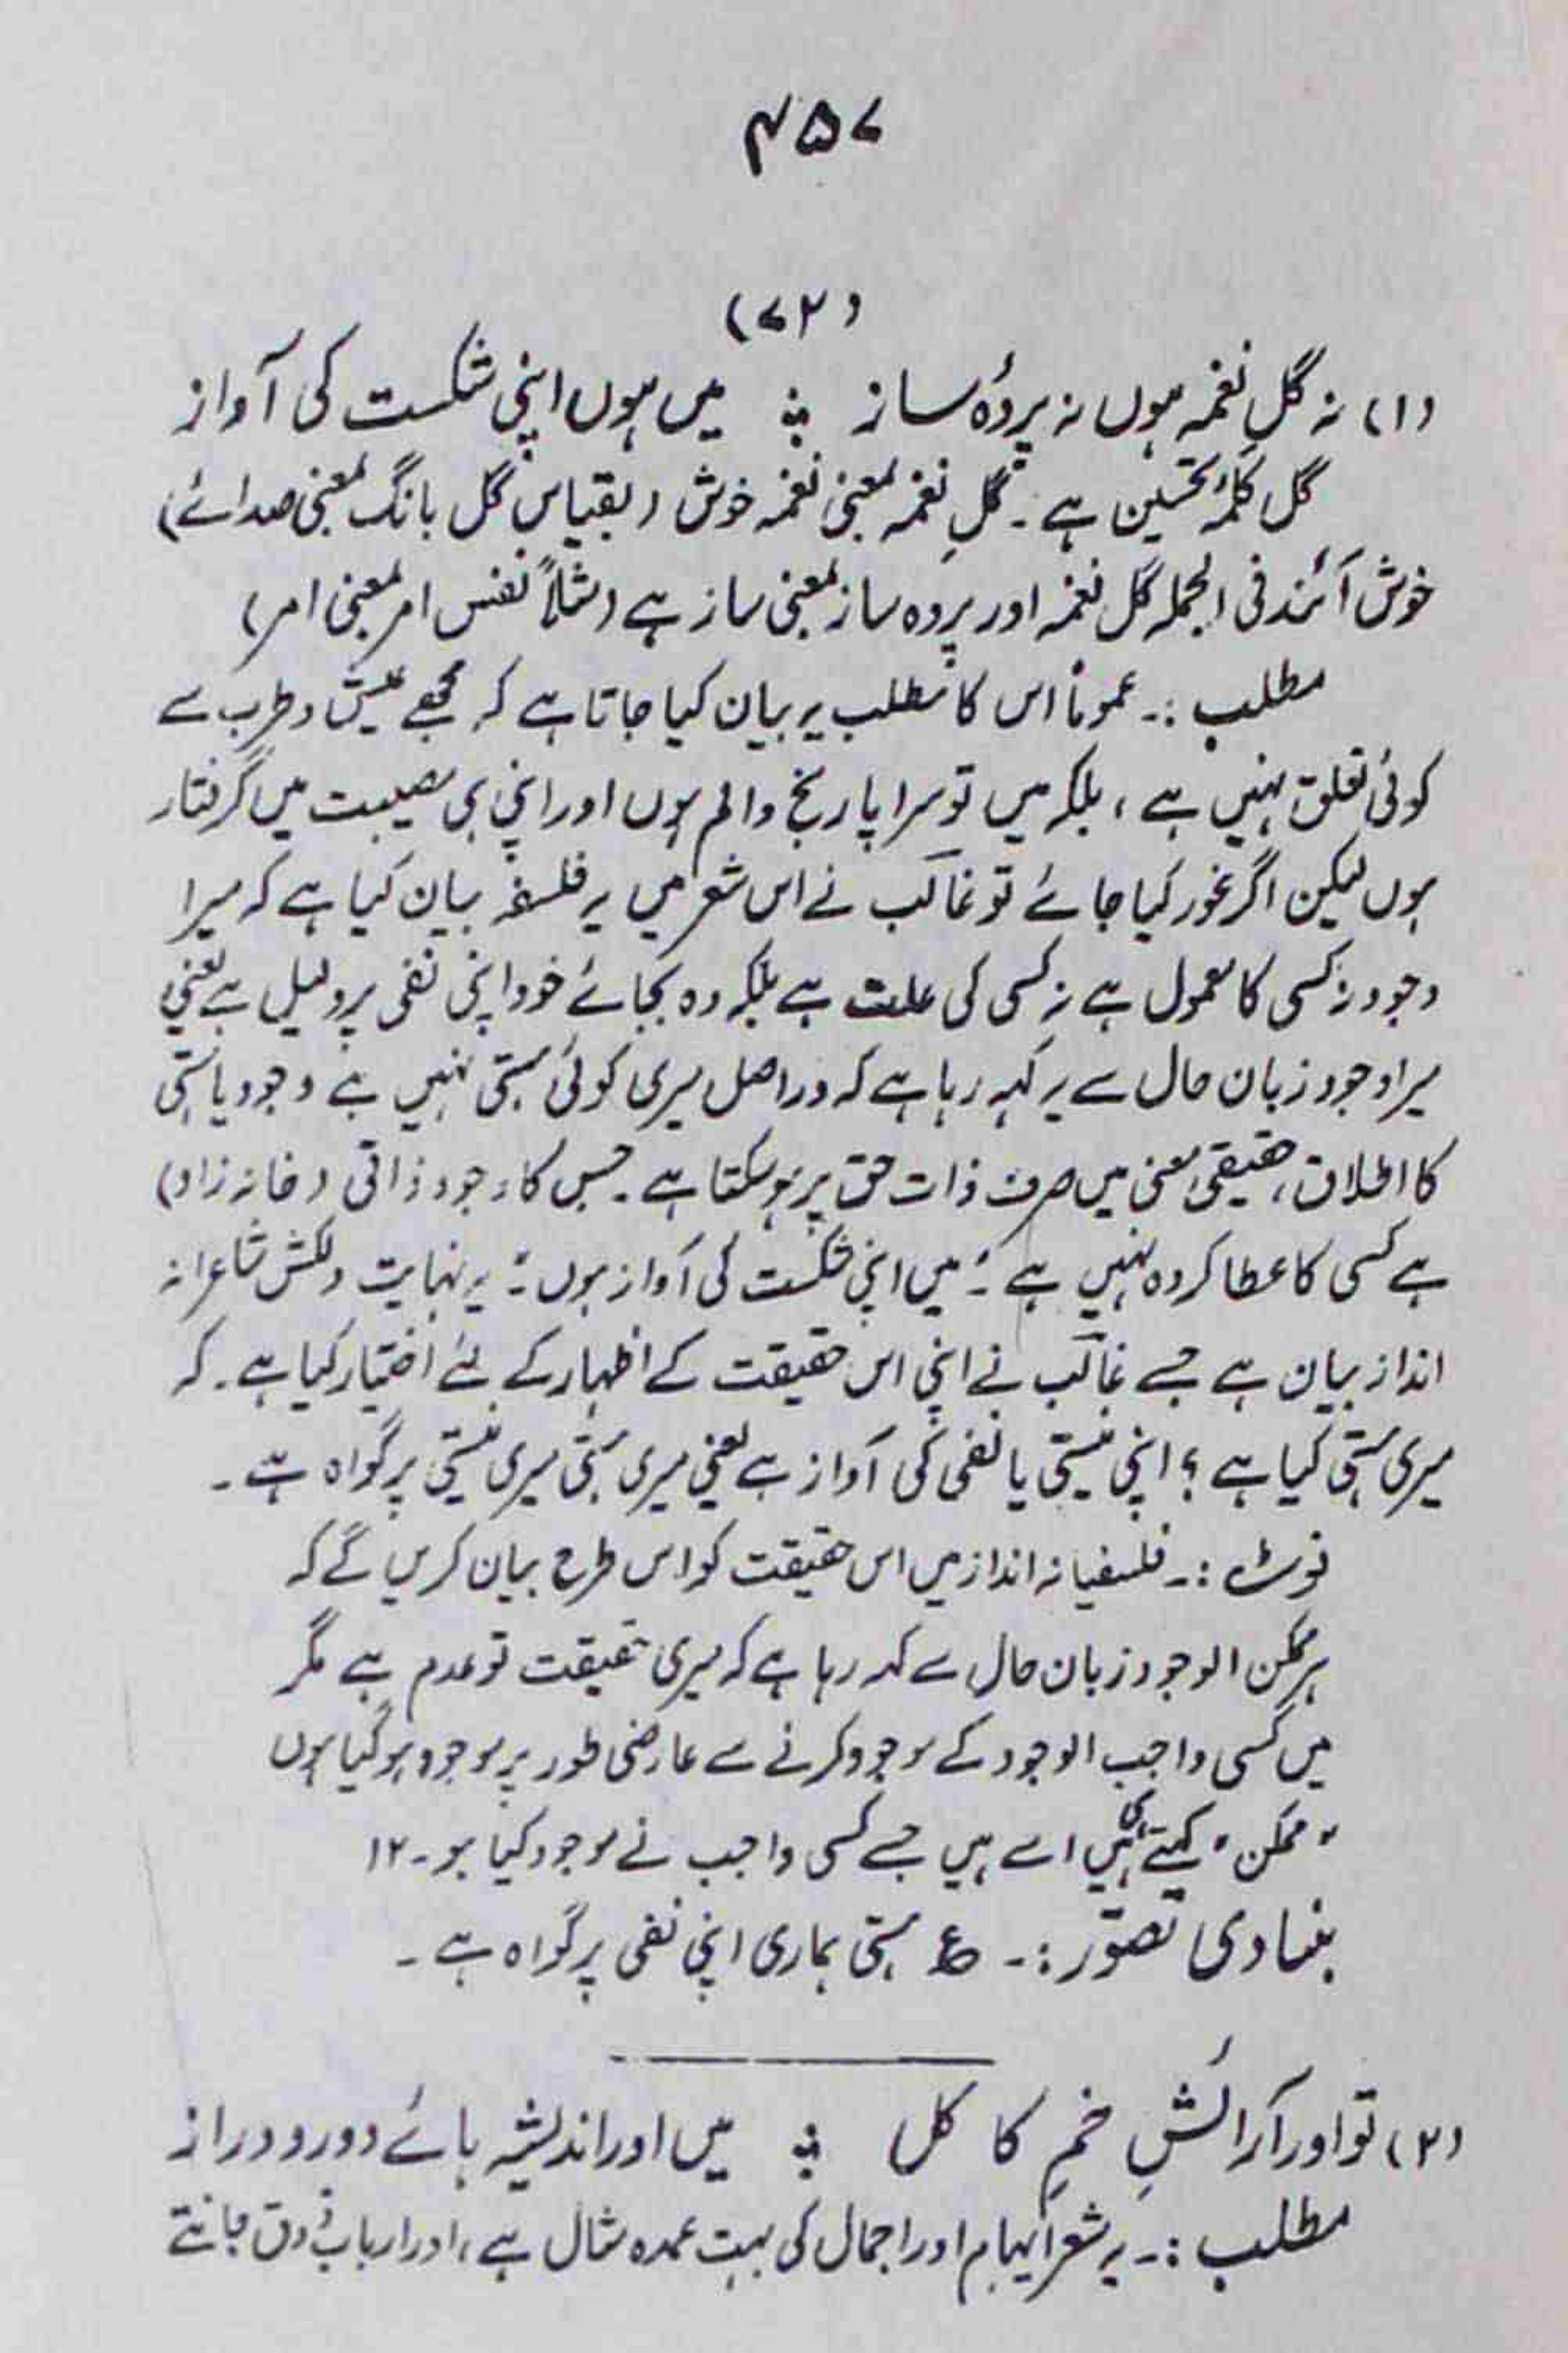 ۴۵۷
(۷۲)
(۱) نہ گلِ نغمہ ہوں نہ پردۂ ساز ؞ میں ہوں اپنی شکست کی آواز
گل کلمۂ تحسین ہے۔ گلِ نغمہ بمعنی نغمہ خوش (بقیاس گل بانگ بمعنی صدائے)
خوش آئند فی الجملہ گل نغمہ اور پردہ ساز بمعنی ساز ہے (مثلاً نفس امر بمعنی امر)
مطلب :۔ عموماً اس کا مطلب یہ بیان کیا جاتا ہے کہ مجھے عیش و طرب سے
کوئی تعلق نہیں ہے، بلکہ میں تو سراپا رنج والم ہوں اور اپنی ہی مصیبت میں گرفتار
ہوں لیکن اگر غور کیا جائے تو غالب نے اس شعر میں یہ فلسفہ بیان کیا ہے کہ میرا
وجود نہ کسی کا معمول ہے نہ کسی کی علت ہے بلکہ وہ بجائے خود اپنی نفی پر دلیل ہے یعنی
میرا وجود زبان حال سے یہ کہہ رہا ہے کہ دراصل میری کوئی ہستی نہیں ہے وجود یا ہستی
کا اطلاق، حقیقی معنی میں صرف ذات حق پر ہو سکتا ہے۔ جس کا وجود ذاتی (خانہ زاد)
ہے کسی کا عطا کردہ نہیں ہے "میں اپنی شکست کی آواز ہوں" یہ نہایت دلکش شاعرانہ
انداز بیان ہے جسے غالب نے اپنی اس حقیقت کے اظہار کے لئے اختیار کیا ہے۔ کہ
میری ہستی کیا ہے؟ اپنی نیستی یا نفی کی آواز ہے یعنی میری ہستی میری نیستی پر گواہ ہے۔
نوٹ :۔ فلسفیانہ انداز میں اس حقیقت کو اس طرح بیان کریں گے کہ
ہر ممکن الوجود زبان حال سے کہہ رہا ہے کہ میری حقیقت تو عدم ہے مگر
میں کسی واجب الوجود کے موجود کرنے سے عارضی طور پر موجود ہو گیا ہوں
"ممکن" کہتے ہی اسے ہیں جسے کسی واجب نے موجود کیا ہو۔ ۱۲
بنیادی تصوّر :۔ ع ہستی ہماری اپنی نفی پر گواہ ہے۔
(۲) تو اور آرائشِ خمِ کا کل ؞ میں اور اندیشہ ہائے دور و دراز
مطلب :۔ یہ شعر ابہام اور اجمال کی بہت عمدہ مثال ہے، اور ارباب ذوق جانتے